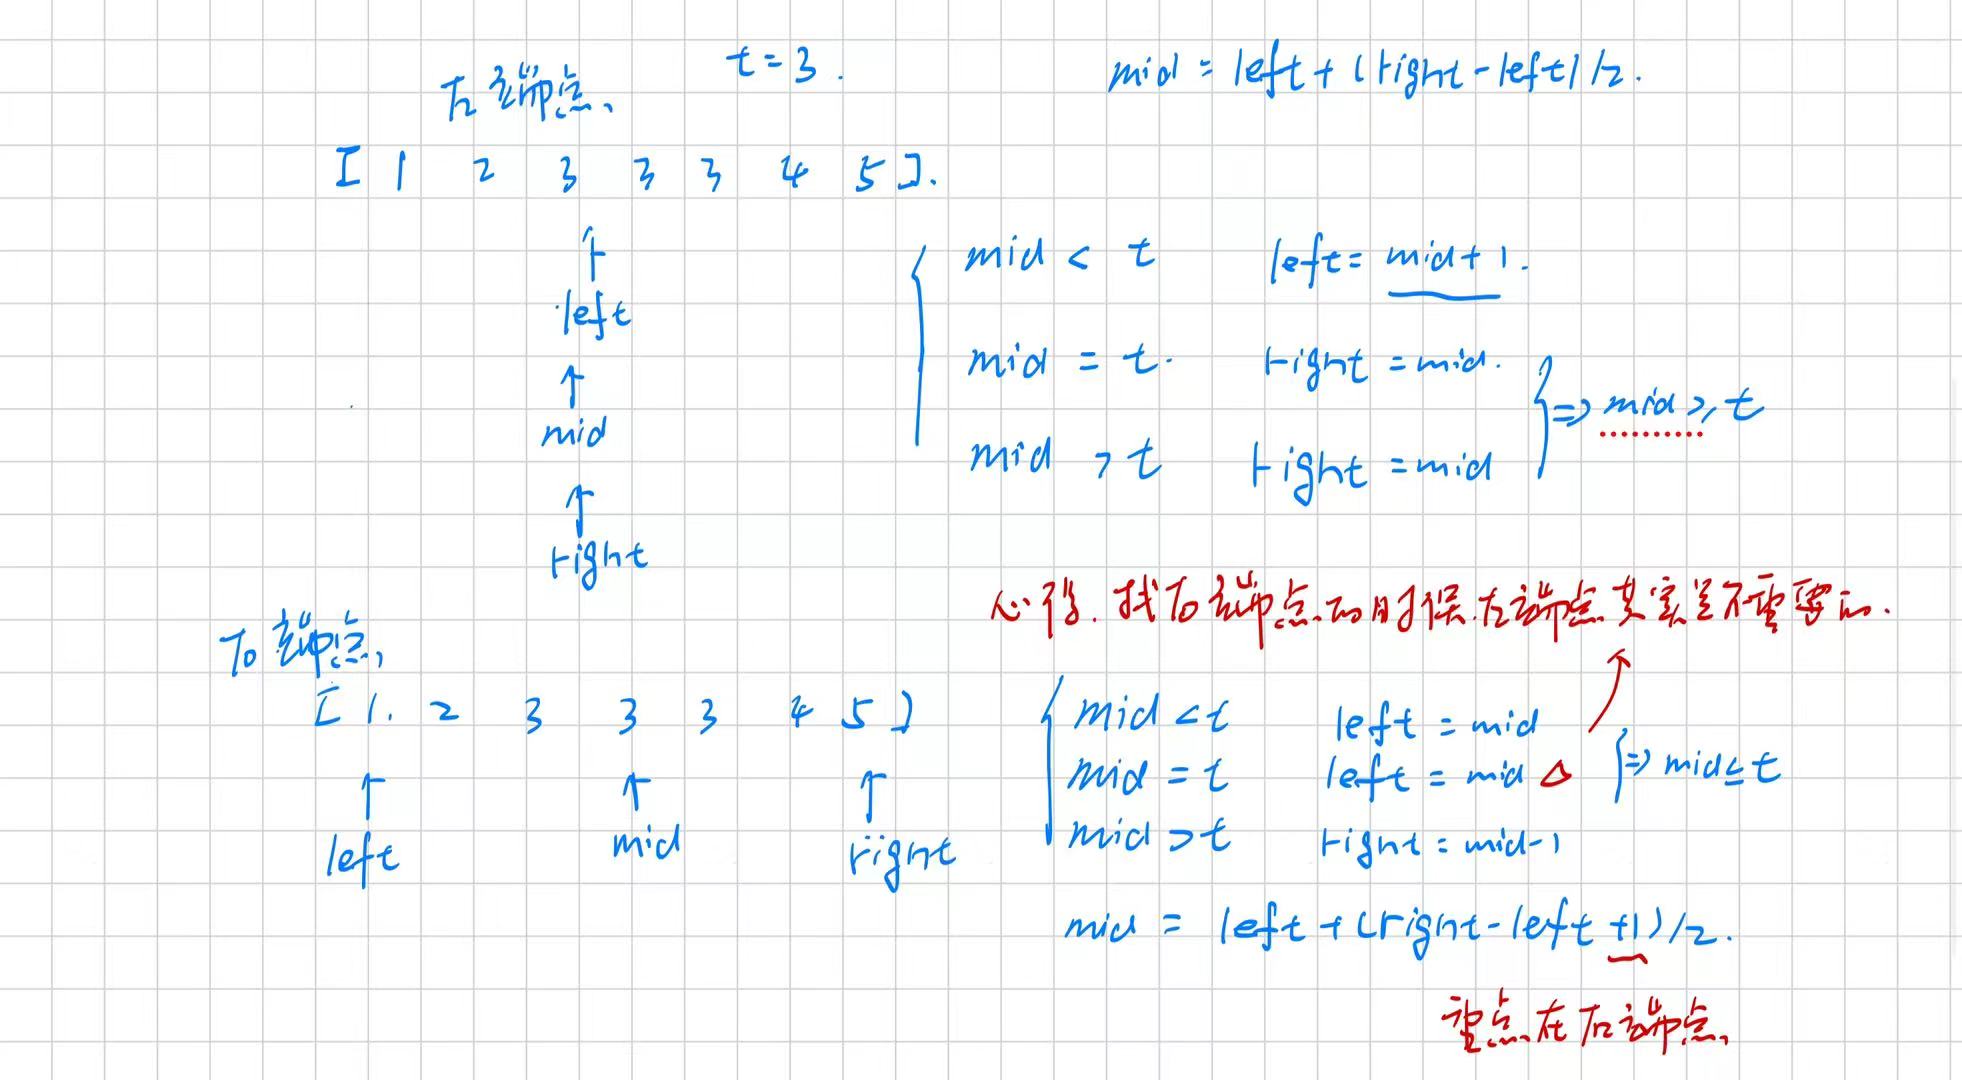 左端点、 t=3. mid = left+(right-left)/2.
[ 1 2 3 3 3 4 5 ].
mid < t left= mid+1.
left
mid = t. right = mid.
⇒ mid ≥ t
mid
mid > t right = mid
right
心得. 找右端点的时候.左端点其实是不重要的.
右端点、
[ 1. 2 3 3 3 4 5 ]
mid < t left = mid
mid = t left = mid △ ⇒ mid≤t
mid > t right = mid-1
left mid right
mid = left+(right-left+1)/2.
重点在右端点、